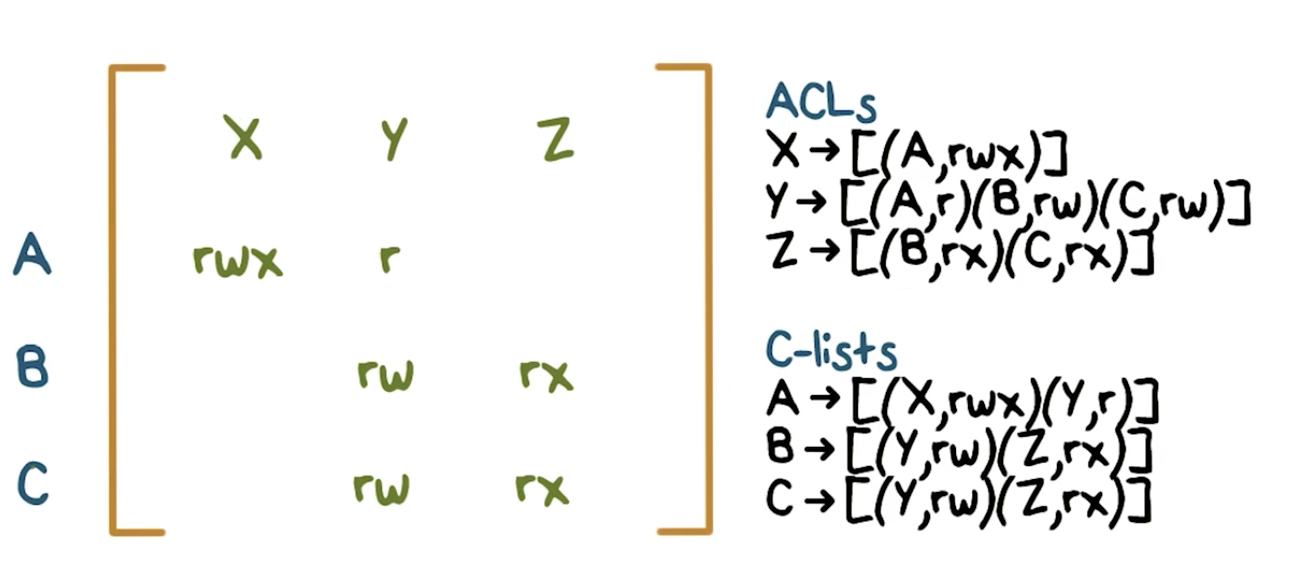 X Y Z
A rwx r
B rw rx
C rw rx
ACLs
X→[(A,rwx)]
Y→[(A,r)(B,rw)(C,rw)]
Z→[(B,rx)(C,rx)]
C-lists
A→[(X,rwx)(Y,r)]
B→[(Y,rw)(Z,rx)]
C→[(Y,rw)(Z,rx)]